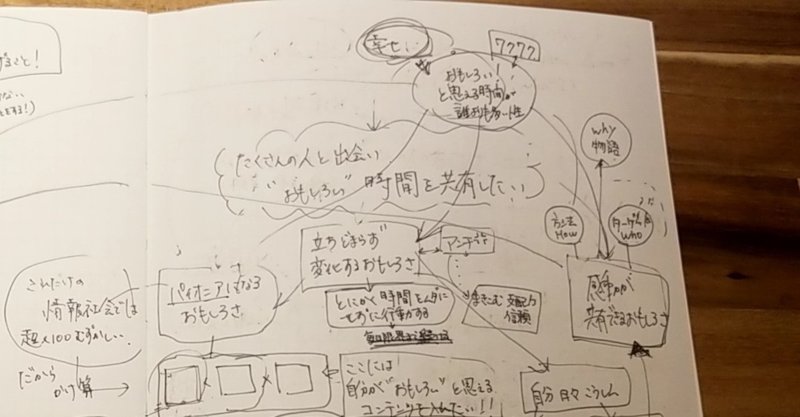 げること!
ない
をする!)
幸せ
7777
おもしろい!
と思える時間が
誰よりも多い人生
why
物語
たくさんの人と出会い
"おもしろい"時間を共有したい
方法
How
who
立ちどまらず
変化するおもしろさ
アンチ
これだけの
情報社会では
超×100むずかしい
パイオニアになる
おもしろさ
とにかく時間をムダに
せずに行動する
まきこむ
信頼
感動が
共有できるおもしろさ
だから
かけ算
ここには
自分が"おもしろい"と思える
コンテンツを入れたい!!
自分日々こうしん